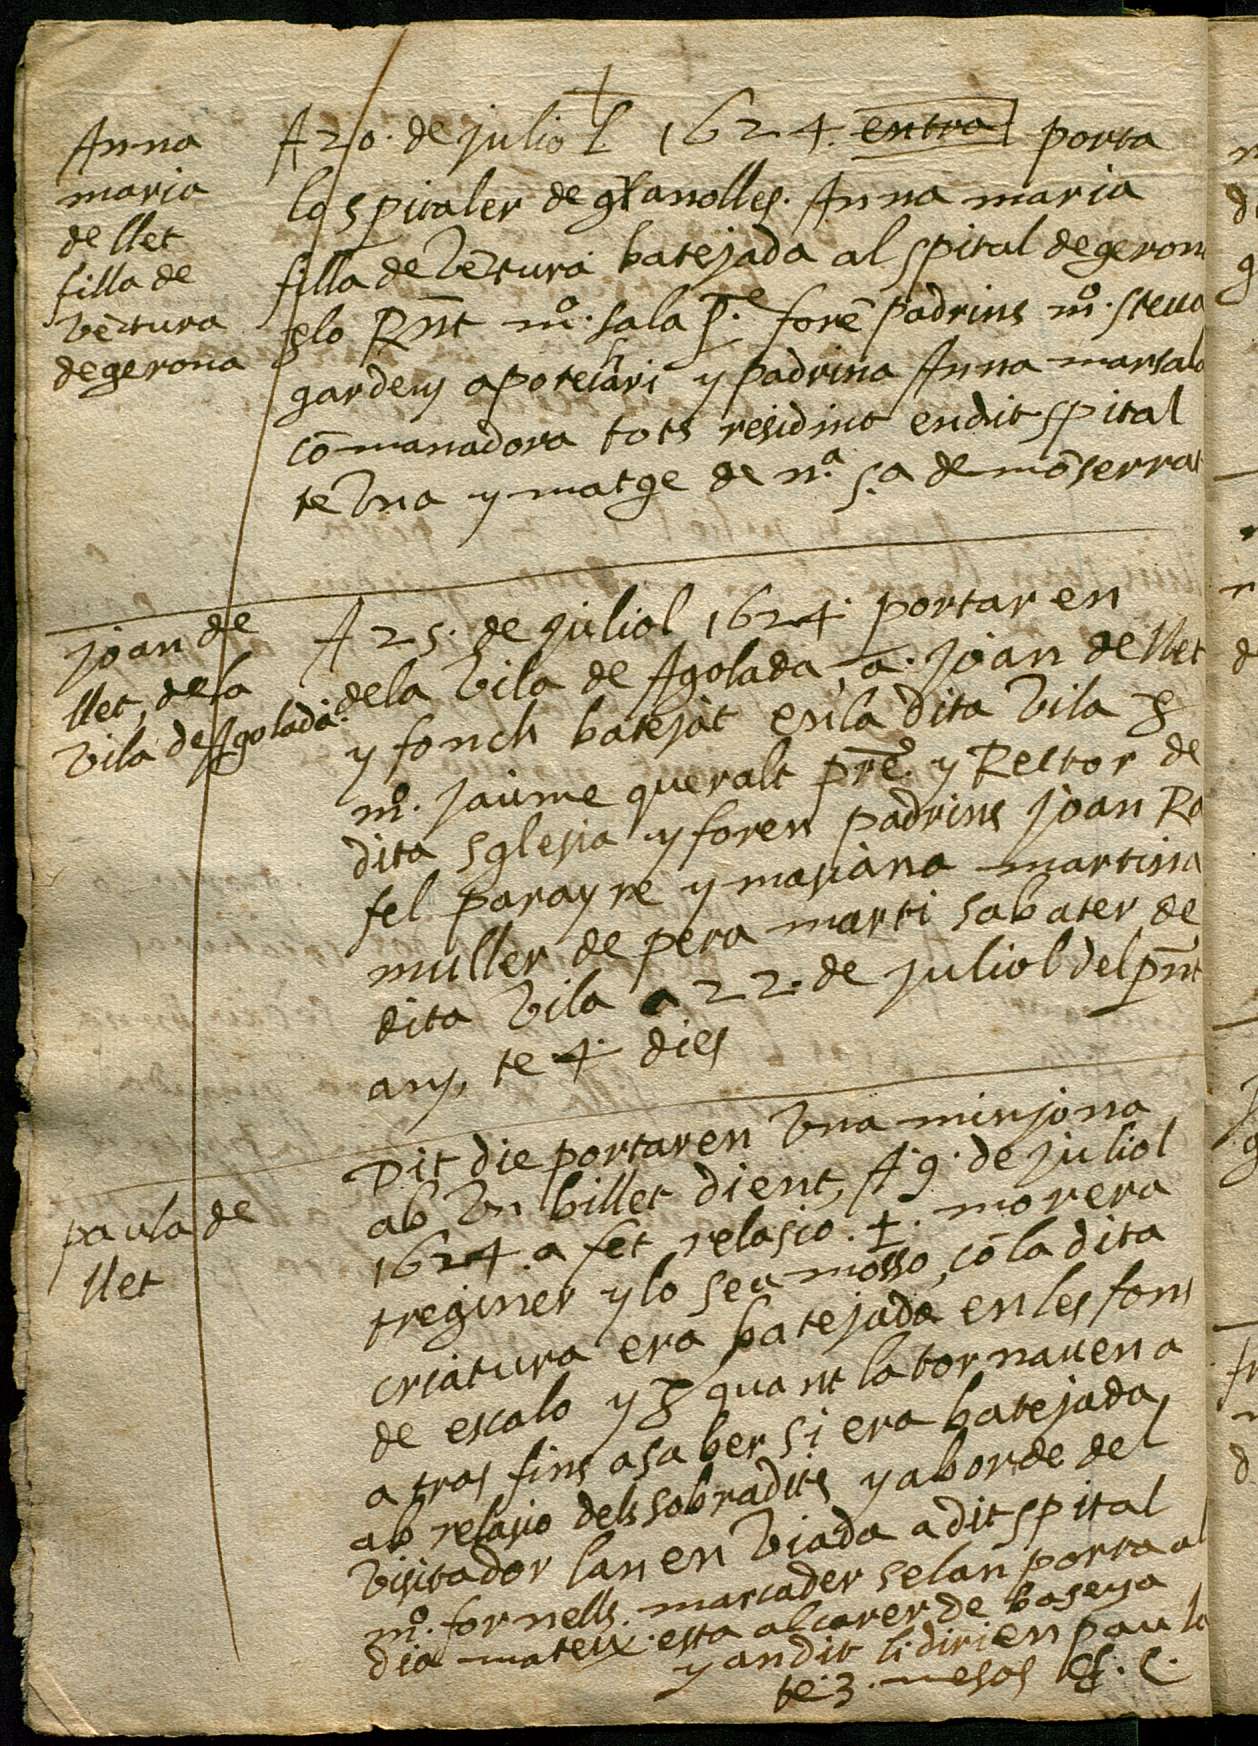 Anna
maria
de llet
filla de
vẽtura
de gerona
A 20. de juliol 1624. entra porta
lo spitaler de granolles. Anna maria
filla de vẽtura batejada al spital de geron
p lo Rnt mº. sala pe. forẽ padrins mº. steua
gardeny apotechari y padrina Anna marsala
cõmanadora tots residint en dit spital
te vna ymatge de nª. sª de mõserrat
joan de
llet, de la
vila de Agolada.
A 25. de juliol 1624. portaren
de la vila de Agolada, a. joan de llet
y fonch batejat en la dita vila p
mº. jaume queralt pre. y Rector de
dita sglesia y foren padrins joan Ra
fel parayre y mariana martina
muller de pera marti sabater de
dita vila a 22. de juliol del pnt
any, te 4. dies
paula de
llet
Dit die portaren vna minjona
ab vn billet dient, A 9. de juliol
1624. a fet relasio. +. morera
treginer y lo seu mosso, cõ la dita
criatura era batejada en les fons
de escalo y p quant la tornauen a
atras fins a saber si era batejada,
ab relasio dels sobradits y ab orde del
visitador lan enviada a dit spital
mº. fornells. marcader se lan porta al
dia mateix. esta al carer de basega
y an dit li dirien paula
te. 3. mesos